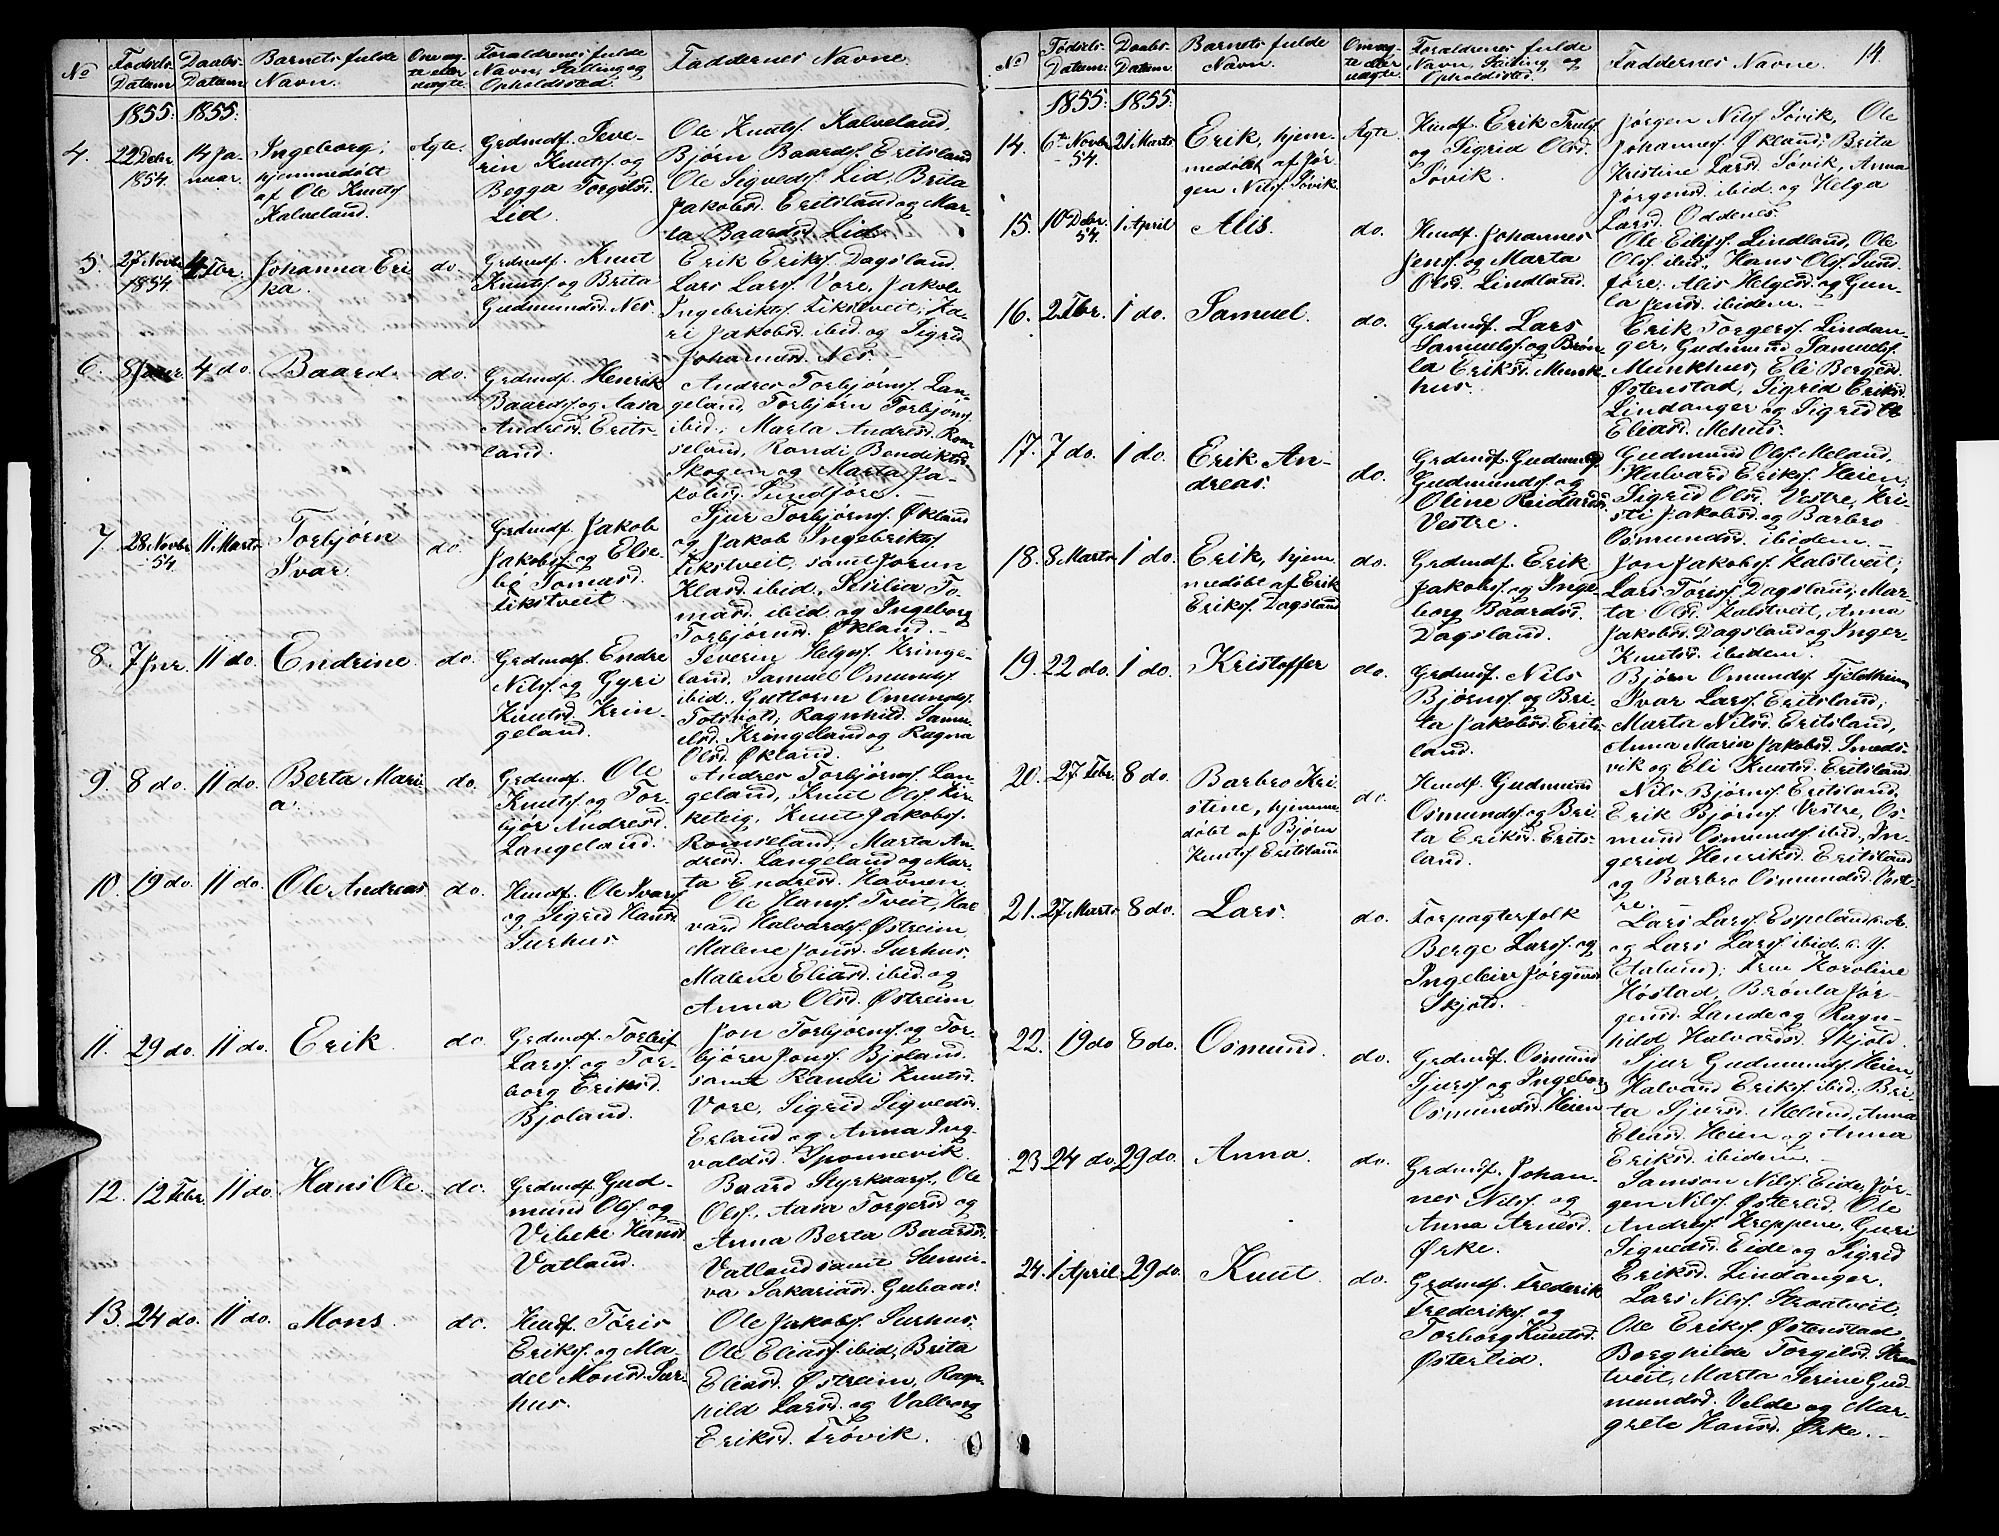 No
Fødsels-
Datum
Daabs-
Datum
Barnets fulde
Navn.
Om æg-
te eller
uægte.
Forældrenes fulde
Navn, Stilling og
Opholdssted.
Faddernes Navne.
1855. 1855.
4.
22 Debr.
1854.
14 Ja-
nuar.
Ingeborg,
hjemmedøbt
af Ole Knuts.
Kalveland.
Ægte.
Grdmdf. Seve-
rin Knuts. og
Begga Torgilsd.
Lid.
Ole Knuts. Kalveland,
Bjørn Baards. Eritsland
Ole Sigveds. Lid, Brita
Jakobsd. Eritsland og Mar-
ta Baardsd. Lid.
5.
27 Novbr.
1854.
4 Fbr.
Johanna Eri
ka.
do.
Grdmdf. Knut
Knuts. og Brita
Gudmundsd. Nes.
Erik Eriks. Dagsland.
Lars Lars. Vore, Jakob
Ingebrikts. Fikstveit, Ka-
ri Jakobsd. ibid. og Sigrid
Johannesd. Nes.
6.
8 Janr
4 do.
Baard.
do.
Grdmdf. Henrik
Baards. og Aasa
Andresd. Erits-
land.
Andres Torbjørns. Lan-
geland, Torbjørn Torbjørns.
ibid., Marta Andresd. Rom
seland, Randi Bendiktsd.
Skogen og Marta Ja-
kobsd. Sundføre.
7.
28 Novbr.
54.
11 Marts
Torbjørn
Ivar.
do.
Grdmdf. Jakob
Jakobs. og Else-
be Tomasd.
Fikstveit.
Sjur Torbjørns. Økland
og Jakob Ingebrikts.
Fikstveit, samt Jorun
Klasd. ibid, Sisilia To-
masd. ibid. og Ingeborg
Torbjørnsd. Økland.
8.
7 Jnr.
11 do.
Endrine.
do.
Grdmdf. Endre
Nils. og Gyri
Knutsd. Krin-
geland.
Severin Helges. Kringe-
land, Samuel Omunds.
ibid., Guttorm Omunds.
Totsvold, Ragnhild Samu-
elsd. Kringeland og Ragna
Olsd. Økland.
9.
8 do.
11 do.
Berta Mari-
a.
do.
Grdmdf. Ole
Knuts. og Tor-
bjør Andresd.
Langeland.
Andres Torbjørns. Lan-
geland, Knut Ols. Kir-
keteig, Knut Jakobs.
Romseland, Marta An-
dresd. Langeland og Mar-
ta Endresd. Havnen.
10.
19 do.
11 do.
Ole Andreas
do.
Hmdf. Ole Ivars.
og Sigrid Hansd.
Surhus.
Ole Hans. Tveit, Hal
vard Halvards. Østreim
Malene Jonsd. Surhus.
Malene Eliasd. ibid. og
Anna Olsd. Østreim
11.
29 do.
11 do.
Erik
do.
Grdmdf. Torleif
Lars. og Tor-
borg Eriksd.
Bjoland.
Jon Torbjørns. og Tor-
bjørn Jons. Bjoland.
samt Randi Knutsd.
Vore, Sigrid Sigvedsd.
Erland og Anna Ing-
valdsd. Sponnevik.
12.
12 Febr.
11 do.
Hans Ole.
do.
Grdmdf. Gud-
mund Ols. og
Vibeke Hansd.
Vatland.
Baard Styrkaars., Ole
Ols., Aasa Torgersd. og
Anna Berta Baardsd.
Vatland samt Sunni-
va Sakariasd. Gubaas.
13.
24 do.
11 do.
Mons.
do.
Hmdf. Tøris
Eriks. og Ma-
del Monsd. Sur-
hus.
Ole Jakobs. Surhus.
Ole Elias. ibid, Brita
Eliasd. Østreim, Ragn-
hild Larsd. og Valborg
Eriksd. Frøvik.
14.
No
Fødsels-
Datum:
Daabs-
Datum.
Barnets fulde
Navn.
Om æg-
te eller
uægte.
Forældrenes fulde
Navn, Stilling og
Opholdssted.
Faddernes Navne.
1855. 1855.
14.
6te Novbr.
54.
21 Marts
Erik, hjem-
medøbt af Jør-
gen Nils. Søvik.
Ægte.
Hmdf. Erik Truls.
og Sigrid Olsd.
Søvik.
Jørgen Nils. Søvik, Ole
Johannes. Økland, Brita
Kristine Larsd. Søvik, Anna
Jørgensd. ibid. og Helga
Larsd. Oddenes.
15.
10 Debr.
54.
1 April
Alis.
do.
Hmdf. Johannes
Jens. og Marta
Olsd. Lindland.
Ole Eilifs. Lindland, Ole
Ols. ibid., Hans Ols. Sund
føre. Alis Helgesd. og Gun-
la Jensd. ibidem.
16.
2 Fbr.
1 do.
Samuel.
do.
Grdmdf. Lars
Samuels. og Brøn-
la Eriksd. Munk-
hus.
Erik Torgers. Lindan-
ger, Gudmund Samuels.
Munkhus, Eli Bergesd.
Østenstad, Sigrid Eriksd.
Lindanger og Sigrid
Eliasd. Mehus.
17.
7 do.
1 do.
Erik An-
dreas.
do.
Grdmdf. Gudmund
Gudmunds. og
Oline Reidarsd.
Vestre.
Gudmund Ols. Meland,
Halvard Eriks. Heien,
Sigrid Olsd. Vestre, Kri-
sti Jakobsd. og Barbro
Osmundsd. ibidem.
18.
8 Marts
1 do.
Erik, hjem
medøbt af Erik
Eriks. Dagsland
do.
Grdmdf. Erik
Jakobs. og Inge-
borg Baardsd.
Dagsland.
Jon Jakobs. Kalstveit,
Lars Toris. Dagsland, Mar-
ta Olsd. Kalstveit, Anna
Jakobsd. Dagsland og Inger
Knutsd. ibidem.
19.
22 do.
1 do.
Kristoffer
do.
Grdmdf. Nils
Bjørns. og Bri-
ta Jakobsd. Erits-
land.
Bjørn Omunds. Fjeldheim
Ivar Lars. Eritsland,
Marta Nilsd. Eritsland,
Anna Maria Jakobsd. Smeds-
vik og Eli Knutsd. Eritsland
20.
27 Febr.
8 do.
Barbro Kri-
stine, hjemme
døbt af Bjørn
Knuts. Eritsland
do.
Hmdf. Gudmund
Osmunds. og Bri-
ta Eriksd. Erits-
land.
Nils Bjørns. Eritsland,
Erik Bjørns. Vestre, Os-
mund Osmunds. ibid., In-
gerid Henriksd. Eritsland
og Barbro Osmundsd. Vest-
re.
21.
27 Marts
8 do.
Lars.
do.
Forpagterfolk
Berge Lars. og
Ingeleiv Jørgensd.
Skjold.
Lars Lars. Espeland d. Æ.
og Lars Lars. ibid. d. Y.
(Aalund); Frue Karoline
Høstad, Brønla Jør-
gensd. Lande og Ragn-
hild Halvardsd. Skjold.
22.
19 do
8 do.
Osmund.
do.
Grdmdf. Osmund
Sjurs. og Ingeborg
Osmundsd. Heien
Sjur Gudmunds. Heien,
Halvard Eriks. ibid, Bri-
ta Sjursd. Meland, Anna
Eliasd. Heien og Anna
Eriksd. ibidem.
23.
24 do
29 do.
Anna.
do.
Grdmdf. Johan-
nes Nils. og
Anna Arnesd.
Ørke.
Samson Nils. Eide, Jør-
gen Nils. Østerlid, Ole
Andres. Kreppene, Guri
Sigvedsd. Eide og Sigrid
Eriksd. Lindanger.
24.
1 April
29 do.
Knut.
do.
Grdmdf. Frederik
Frederiks. og
Torborg Knutsd.
Østerlid.
Lars Nils. Straatveit,
Ole Eriks. Østenstad.
Borghilde Torgilsd. Straa
tveit, Marta Serine Gud-
mundsd. Velde og Mar-
grete Hansd. Ørke.